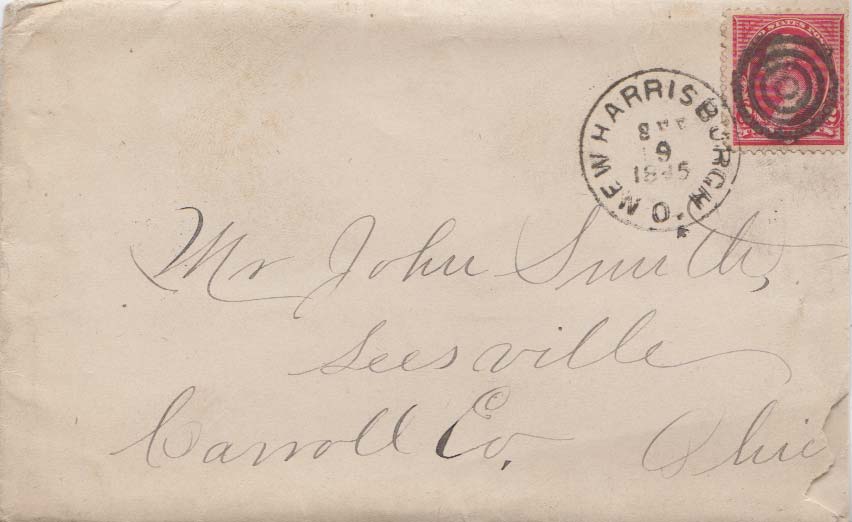 NEW HARRISBURGH, O.
9
Mr John Smith,
Leesville
Carroll Co, Ohio